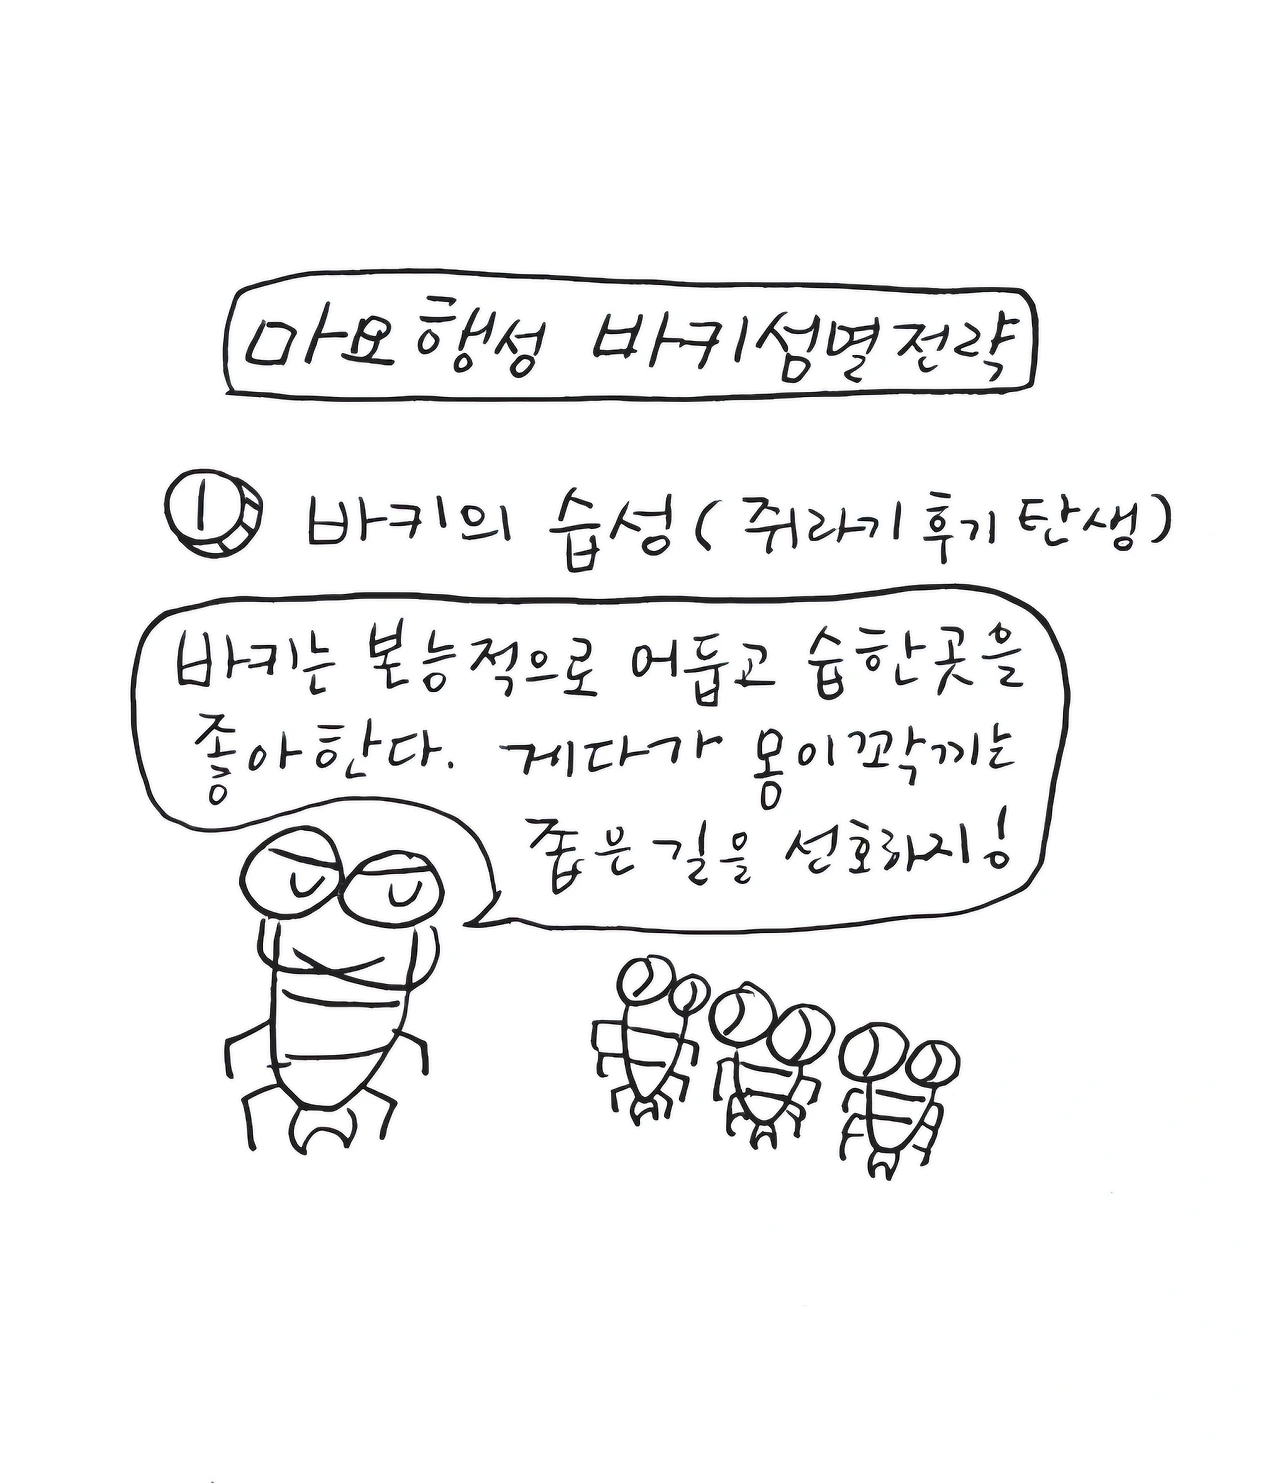 마요행성 바키섬멸전략
① 바키의 습성(쥐라기후기탄생)
바키는 본능적으로 어둡고 습한곳을
좋아한다. 게다가 몸이꽉끼는
좁은길을 선호하지!